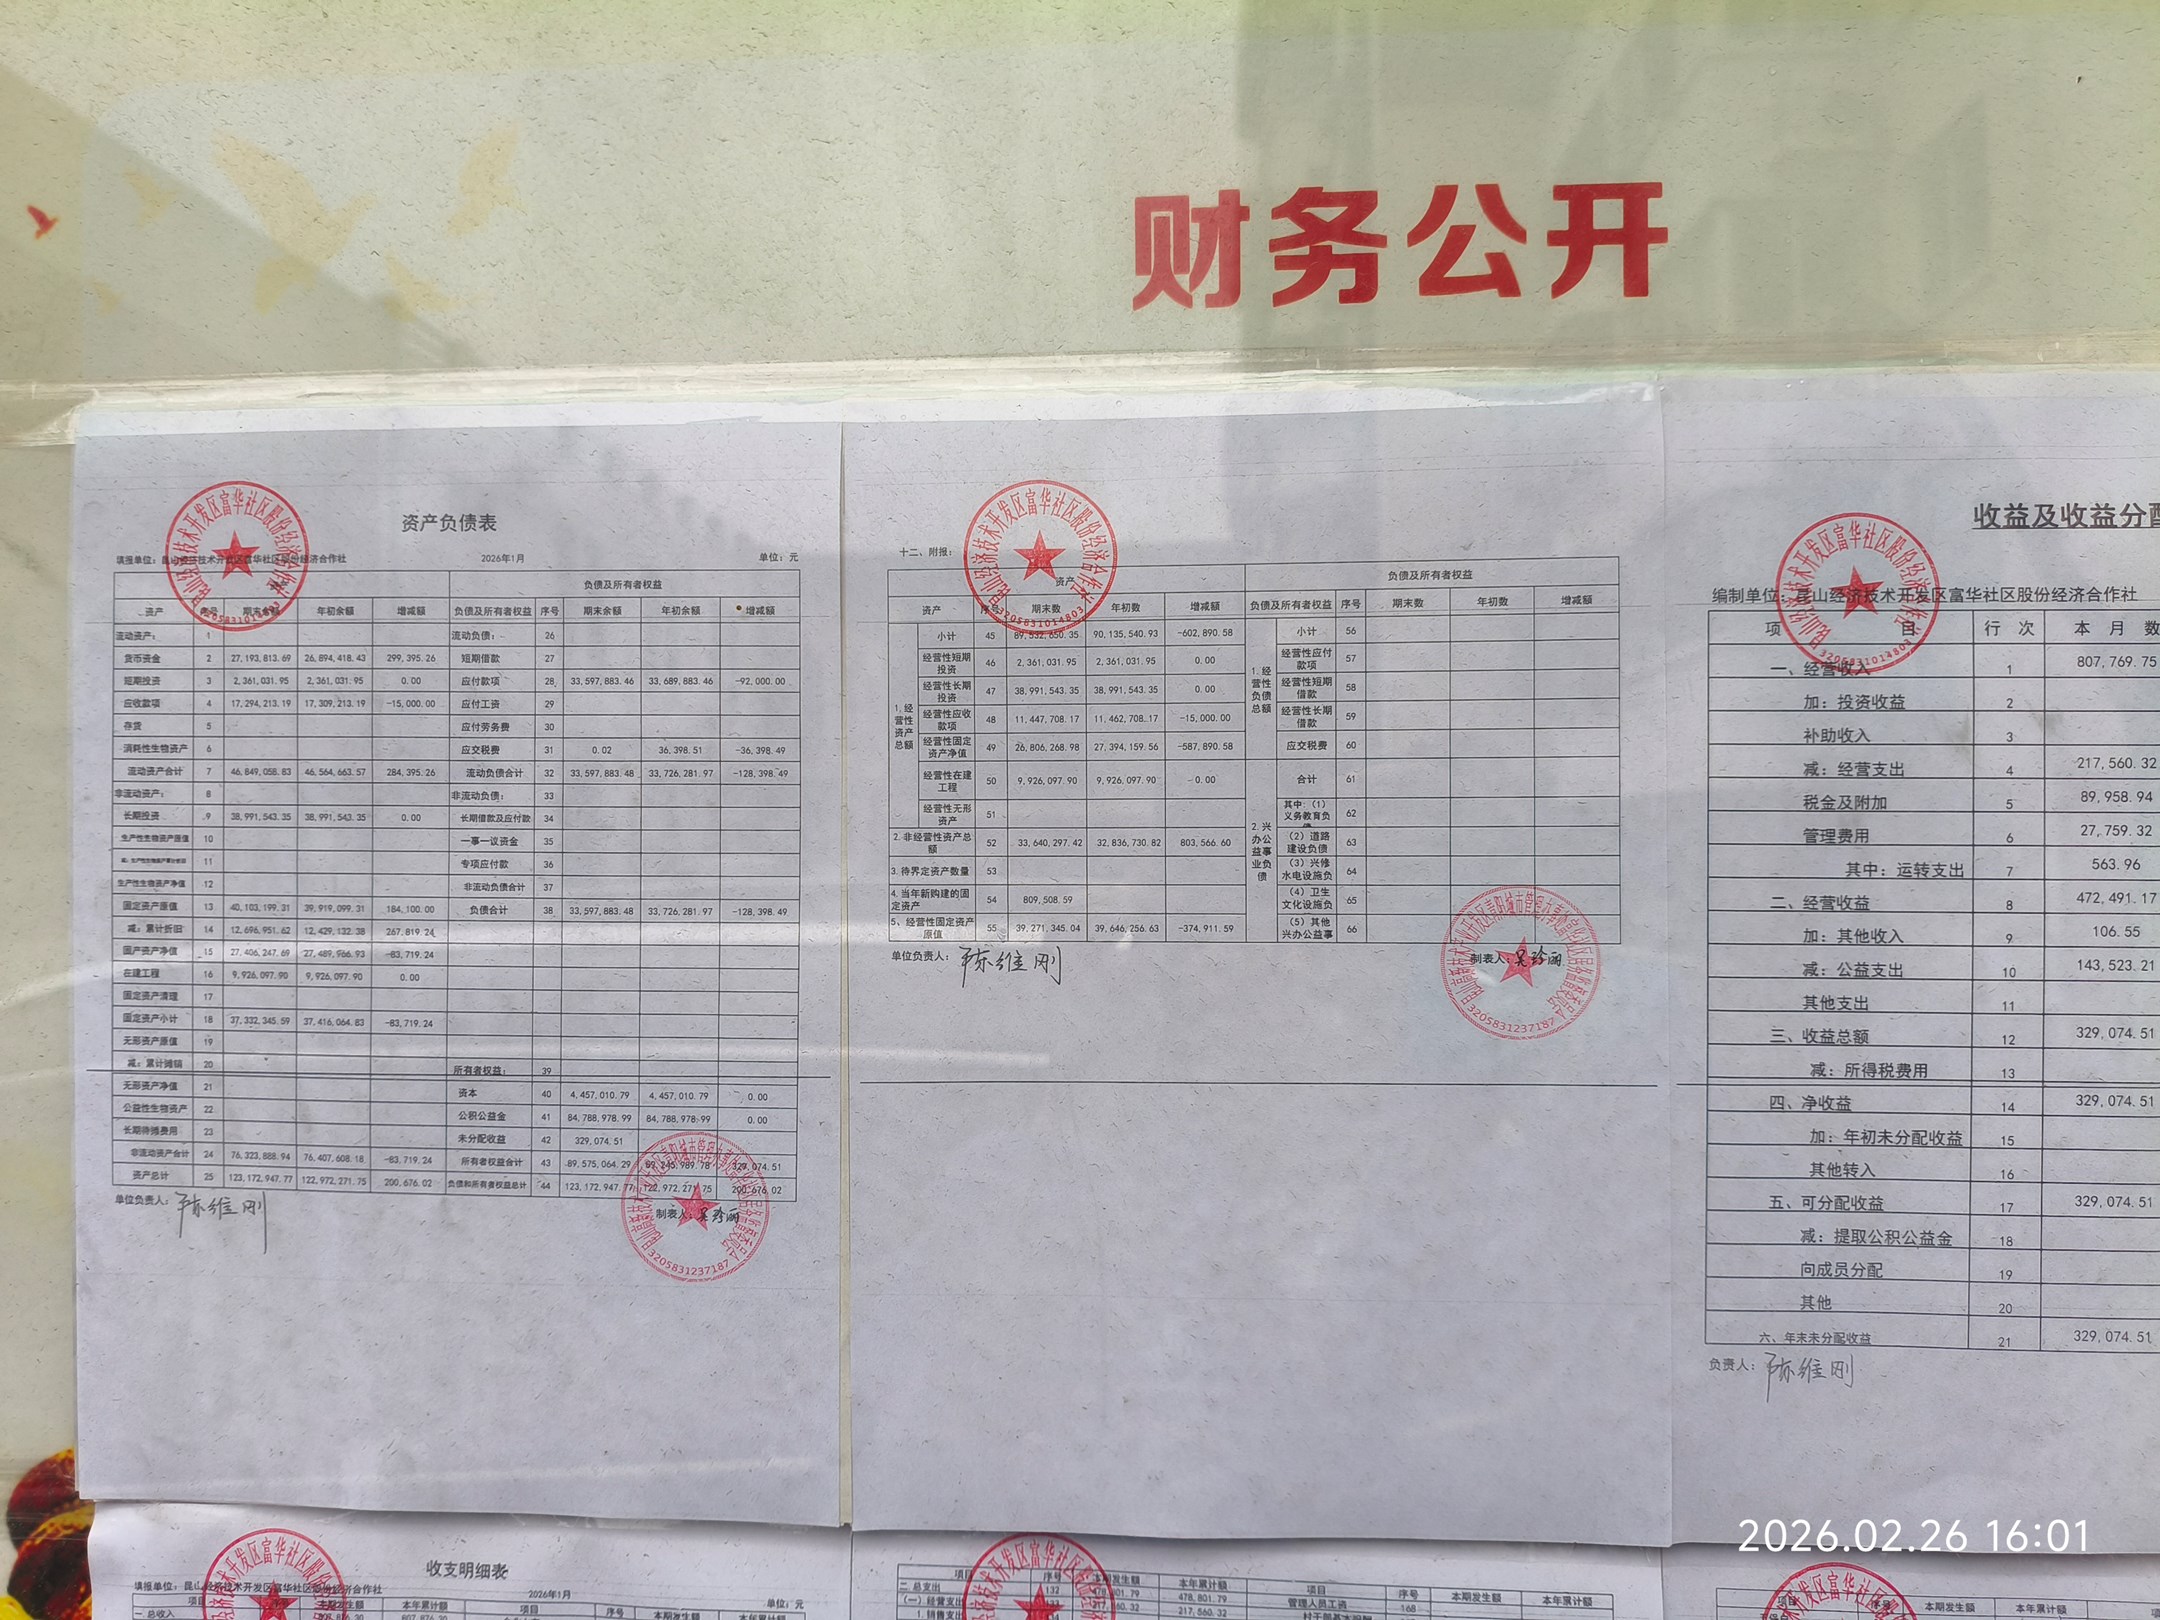 财务公开
资产负债表
填报单位：昆山经济技术开发区富华社区股份经济合作社 2026年1月 单位：元
负债及所有者权益
资产 序号 期末余额 年初余额 增减额 负债及所有者权益 序号 期末余额 年初余额 增减额
流动资产： 1 流动负债： 26
货币资金 2 27,193,813.69 26,894,418.43 299,395.26 短期借款 27
短期投资 3 2,361,031.95 2,361,031.95 0.00 应付款项 28 33,597,883.46 33,689,883.46 -92,000.00
应收款项 4 17,294,213.19 17,309,213.19 -15,000.00 应付工资 29
存货 5 应付劳务费 30
消耗性生物资产 6 应交税费 31 0.02 36,398.51 -36,398.49
流动资产合计 7 46,849,058.83 46,564,663.57 284,395.26 流动负债合计 32 33,597,883.48 33,726,281.97 -128,398.49
非流动资产： 8 非流动负债： 33
长期投资 9 38,991,543.35 38,991,543.35 0.00 长期借款及应付款 34
生产性生物资产原值 10 一事一议资金 35
减：生产性生物资产累计折旧 11 专项应付款 36
生产性生物资产净值 12 非流动负债合计 37
固定资产原值 13 40,103,199.31 39,919,099.31 184,100.00 负债合计 38 33,597,883.48 33,726,281.97 -128,398.49
减：累计折旧 14 12,696,951.62 12,429,132.38 267,819.24
固定资产净值 15 27,406,247.69 27,489,966.93 -83,719.24
在建工程 16 9,926,097.90 9,926,097.90 0.00
固定资产清理 17
固定资产小计 18 37,332,345.59 37,416,064.83 -83,719.24
无形资产原值 19
减：累计摊销 20 所有者权益： 39
无形资产净值 21 资本 40 4,457,010.79 4,457,010.79 0.00
公益性生物资产 22 公积公益金 41 84,788,978.99 84,788,978.99 0.00
长期待摊费用 23 未分配收益 42 329,074.51
非流动资产合计 24 76,323,888.94 76,407,608.18 -83,719.24 所有者权益合计 43 89,575,064.29 89,245,989.78 329,074.51
资产总计 25 123,172,947.77 122,972,271.75 200,676.02 负债和所有者权益总计 44 123,172,947.77 122,972,271.75 200,676.02
单位负责人：陈维刚 制表人：吴珍丽
昆山经济技术开发区富华社区股份经济合作社
3205831014803
3205831237187
十二、附报：
资产 负债及所有者权益
资产 序号 期末数 年初数 增减额 负债及所有者权益 序号 期末数 年初数 增减额
1.经营性资产总额 小计 45 89,532,650.35 90,135,540.93 -602,890.58 1.经营性负债总额 小计 56
经营性短期投资 46 2,361,031.95 2,361,031.95 0.00 经营性应付款项 57
经营性长期投资 47 38,991,543.35 38,991,543.35 0.00 经营性短期借款 58
经营性应收款项 48 11,447,708.17 11,462,708.17 -15,000.00 经营性长期借款 59
经营性固定资产净值 49 26,806,268.98 27,394,159.56 -587,890.58 应交税费 60
经营性在建工程 50 9,926,097.90 9,926,097.90 0.00 2.兴办公益事业负债 合计 61
经营性无形资产 51 其中：（1）义务教育负债 62
2.非经营性资产总额 52 33,640,297.42 32,836,730.82 803,566.60 （2）道路建设负债 63
3.待界定资产数量 53 （3）兴修水电设施负 64
4.当年新购建的固定资产 54 809,508.59 （4）卫生文化设施负 65
5、经营性固定资产原值 55 39,271,345.04 39,646,256.63 -374,911.59 （5）其他兴办公益事 66
单位负责人：陈维刚 制表人：吴珍丽
昆山经济技术开发区富华社区股份经济合作社
3205831014803
3205831237187
收益及收益分配
编制单位：昆山经济技术开发区富华社区股份经济合作社
项 目 行 次 本 月 数
一、经营收入 1 807,769.75
加：投资收益 2
补助收入 3
减：经营支出 4 217,560.32
税金及附加 5 89,958.94
管理费用 6 27,759.32
其中：运转支出 7 563.96
二、经营收益 8 472,491.17
加：其他收入 9 106.55
减：公益支出 10 143,523.21
其他支出 11
三、收益总额 12 329,074.51
减：所得税费用 13
四、净收益 14 329,074.51
加：年初未分配收益 15
其他转入 16
五、可分配收益 17 329,074.51
减：提取公积公益金 18
向成员分配 19
其他 20
六、年末未分配收益 21 329,074.51
负责人：陈维刚
昆山经济技术开发区富华社区股份经济合作社
3205831014803
收支明细表
填报单位：昆山经济技术开发区富华社区股份经济合作社 2026年1月 单位：元
项目 序号 本期发生额 本年累计额 项目 序号 本期发生额 本年累计额
一 总收入 807,876.30 807,876.30
项目 序号 本期发生额 本年累计额 项目 序号 本期发生额 本年累计额
二 总支出 132 478,801.79 478,801.79 管理人员工资 168
(一)经营支出 133 217,560.32 217,560.32
1.销售支出 134
项目 序号 本期发生额 本年累计额
2026.02.26 16:01